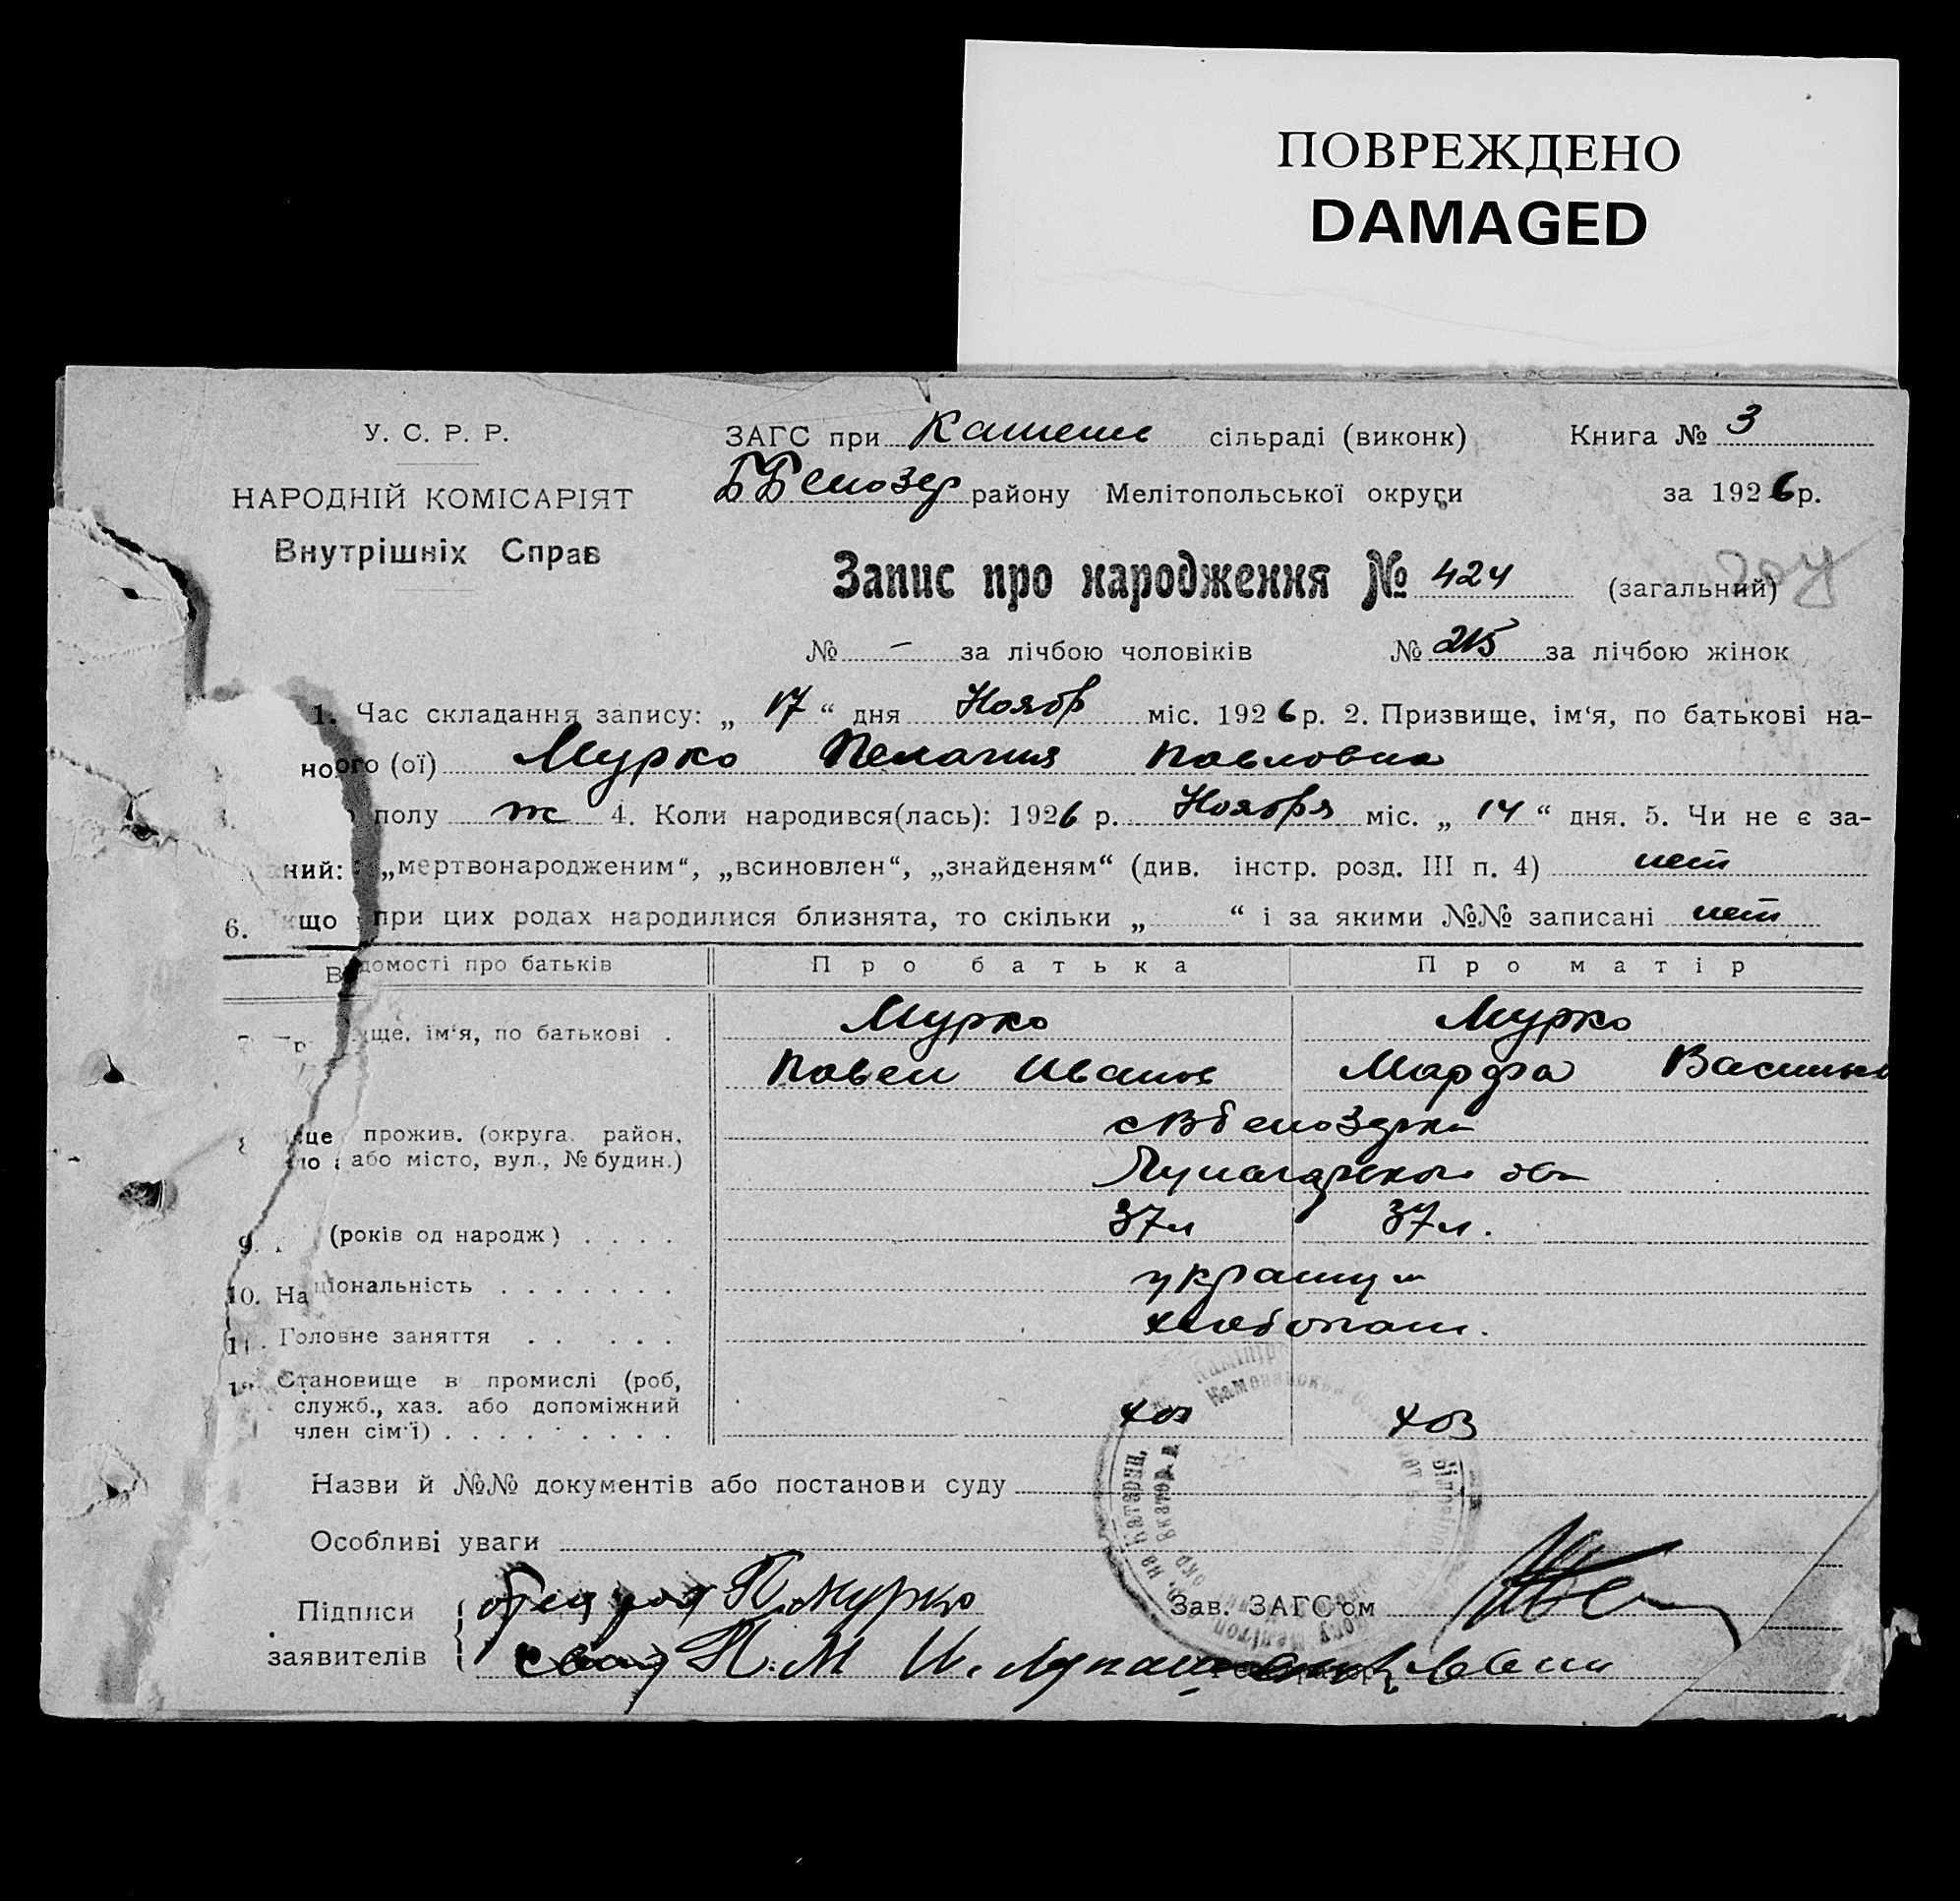 ПОВРЕЖДЕНО
DAMAGED
У. С. Р. Р.
ЗАГС при сільраді (виконк) Книга № 3
НАРОДНІЙ КОМІСАРІЯТ
району Мелітопольської округи за 1926 р.
Внутрішніх Справ
Запис про народження № 424 (загальний)
№ – за лічбою чоловіків № 215 за лічбою жінок
1. Час складання запису: „ 17 “ дня Нояб міс. 1926 р. 2. Призвище, ім'я, по батькові на-
ного (ої) Мурко Пелагия Павловна
полу ж 4. Коли народився(лась): 1926 р. Ноября міс. „ 14 “ дня. 5. Чи не є за-
ний: „мертвонародженим“, „всиновлен“, „знайденям“ (див. інстр. розд. III п. 4) нет
6. що при цих родах народилися близнята, то скільки „ “ і за якими №№ записані нет
Відомості про батьків Про батька Про матір
ще, ім'я, по батькові . Мурко Мурко
Павел Иванов Марфа Василье
прожив. (округа, район,
або місто, вул., № будин.)
9. (років од народж) . . . . 37 л 37 л.
10. Національність . . . . . . .
11. Головне заняття . . . . . хлебопаш.
Становище в промислі (роб,
служб., хаз. або допоміжний
член сім'ї) . . . . . . . . . хоз хоз
Назви й №№ документів або постанови суду
Особливі уваги
Підписи П. Мурко Зав. ЗАГС'ом
заявителів